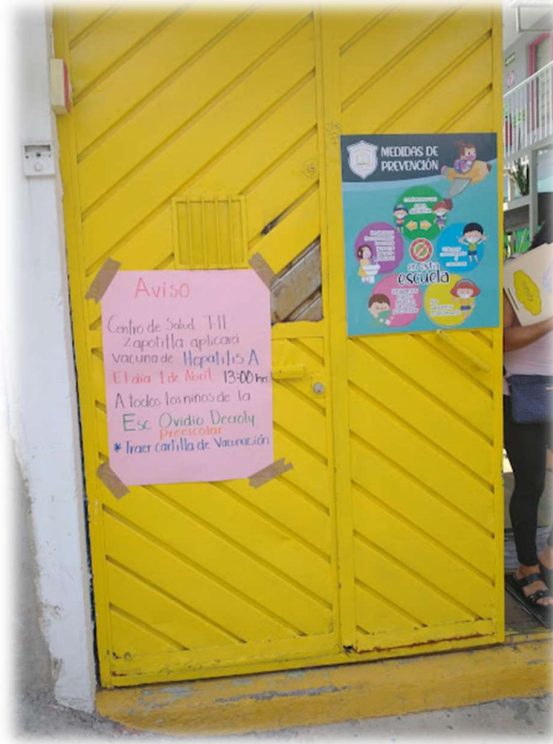 Aviso
Centro de Salud T-II
Zapotilla aplicará
vacuna de Hepatitis A
El día 1 de Abril 13:00 hrs
A todos los niños de la
Esc. Ovidio Decroly
preescolar
* Traer cartilla de Vacunación
MEDIDAS DE
PREVENCIÓN
en esta
escuela